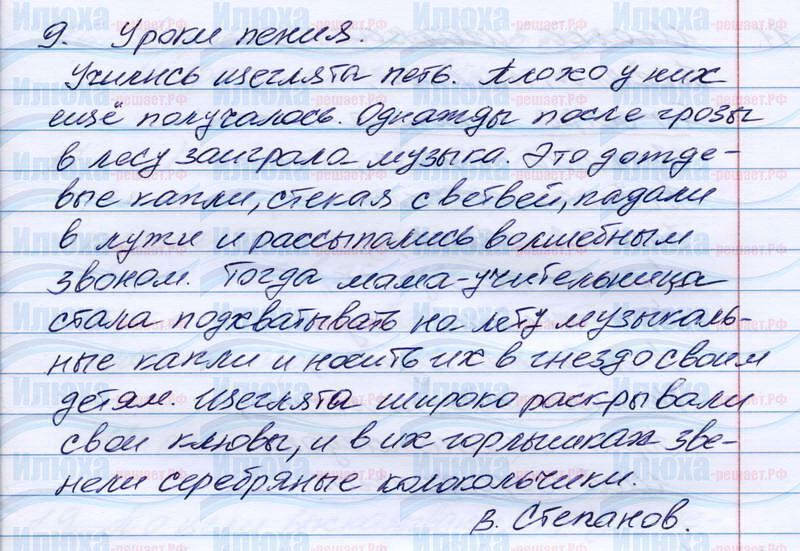 9. Уроки пения.
Учились щеглята петь. Плохо у них
ещё получалось. Однажды после грозы
в лесу заиграла музыка. Это дожде-
вые капли, стекая с ветвей, падали
в лужи и рассыпались волшебным
звоном. Тогда мама-учительница
стала подхватывать на лету музыкаль-
ные капли и носить их в гнездо своим
детям. Щеглята широко раскрывали
свои клювы, и в их горлышках зве-
нели серебряные колокольчики.
В. Степанов.
Илюха-решает.РФ